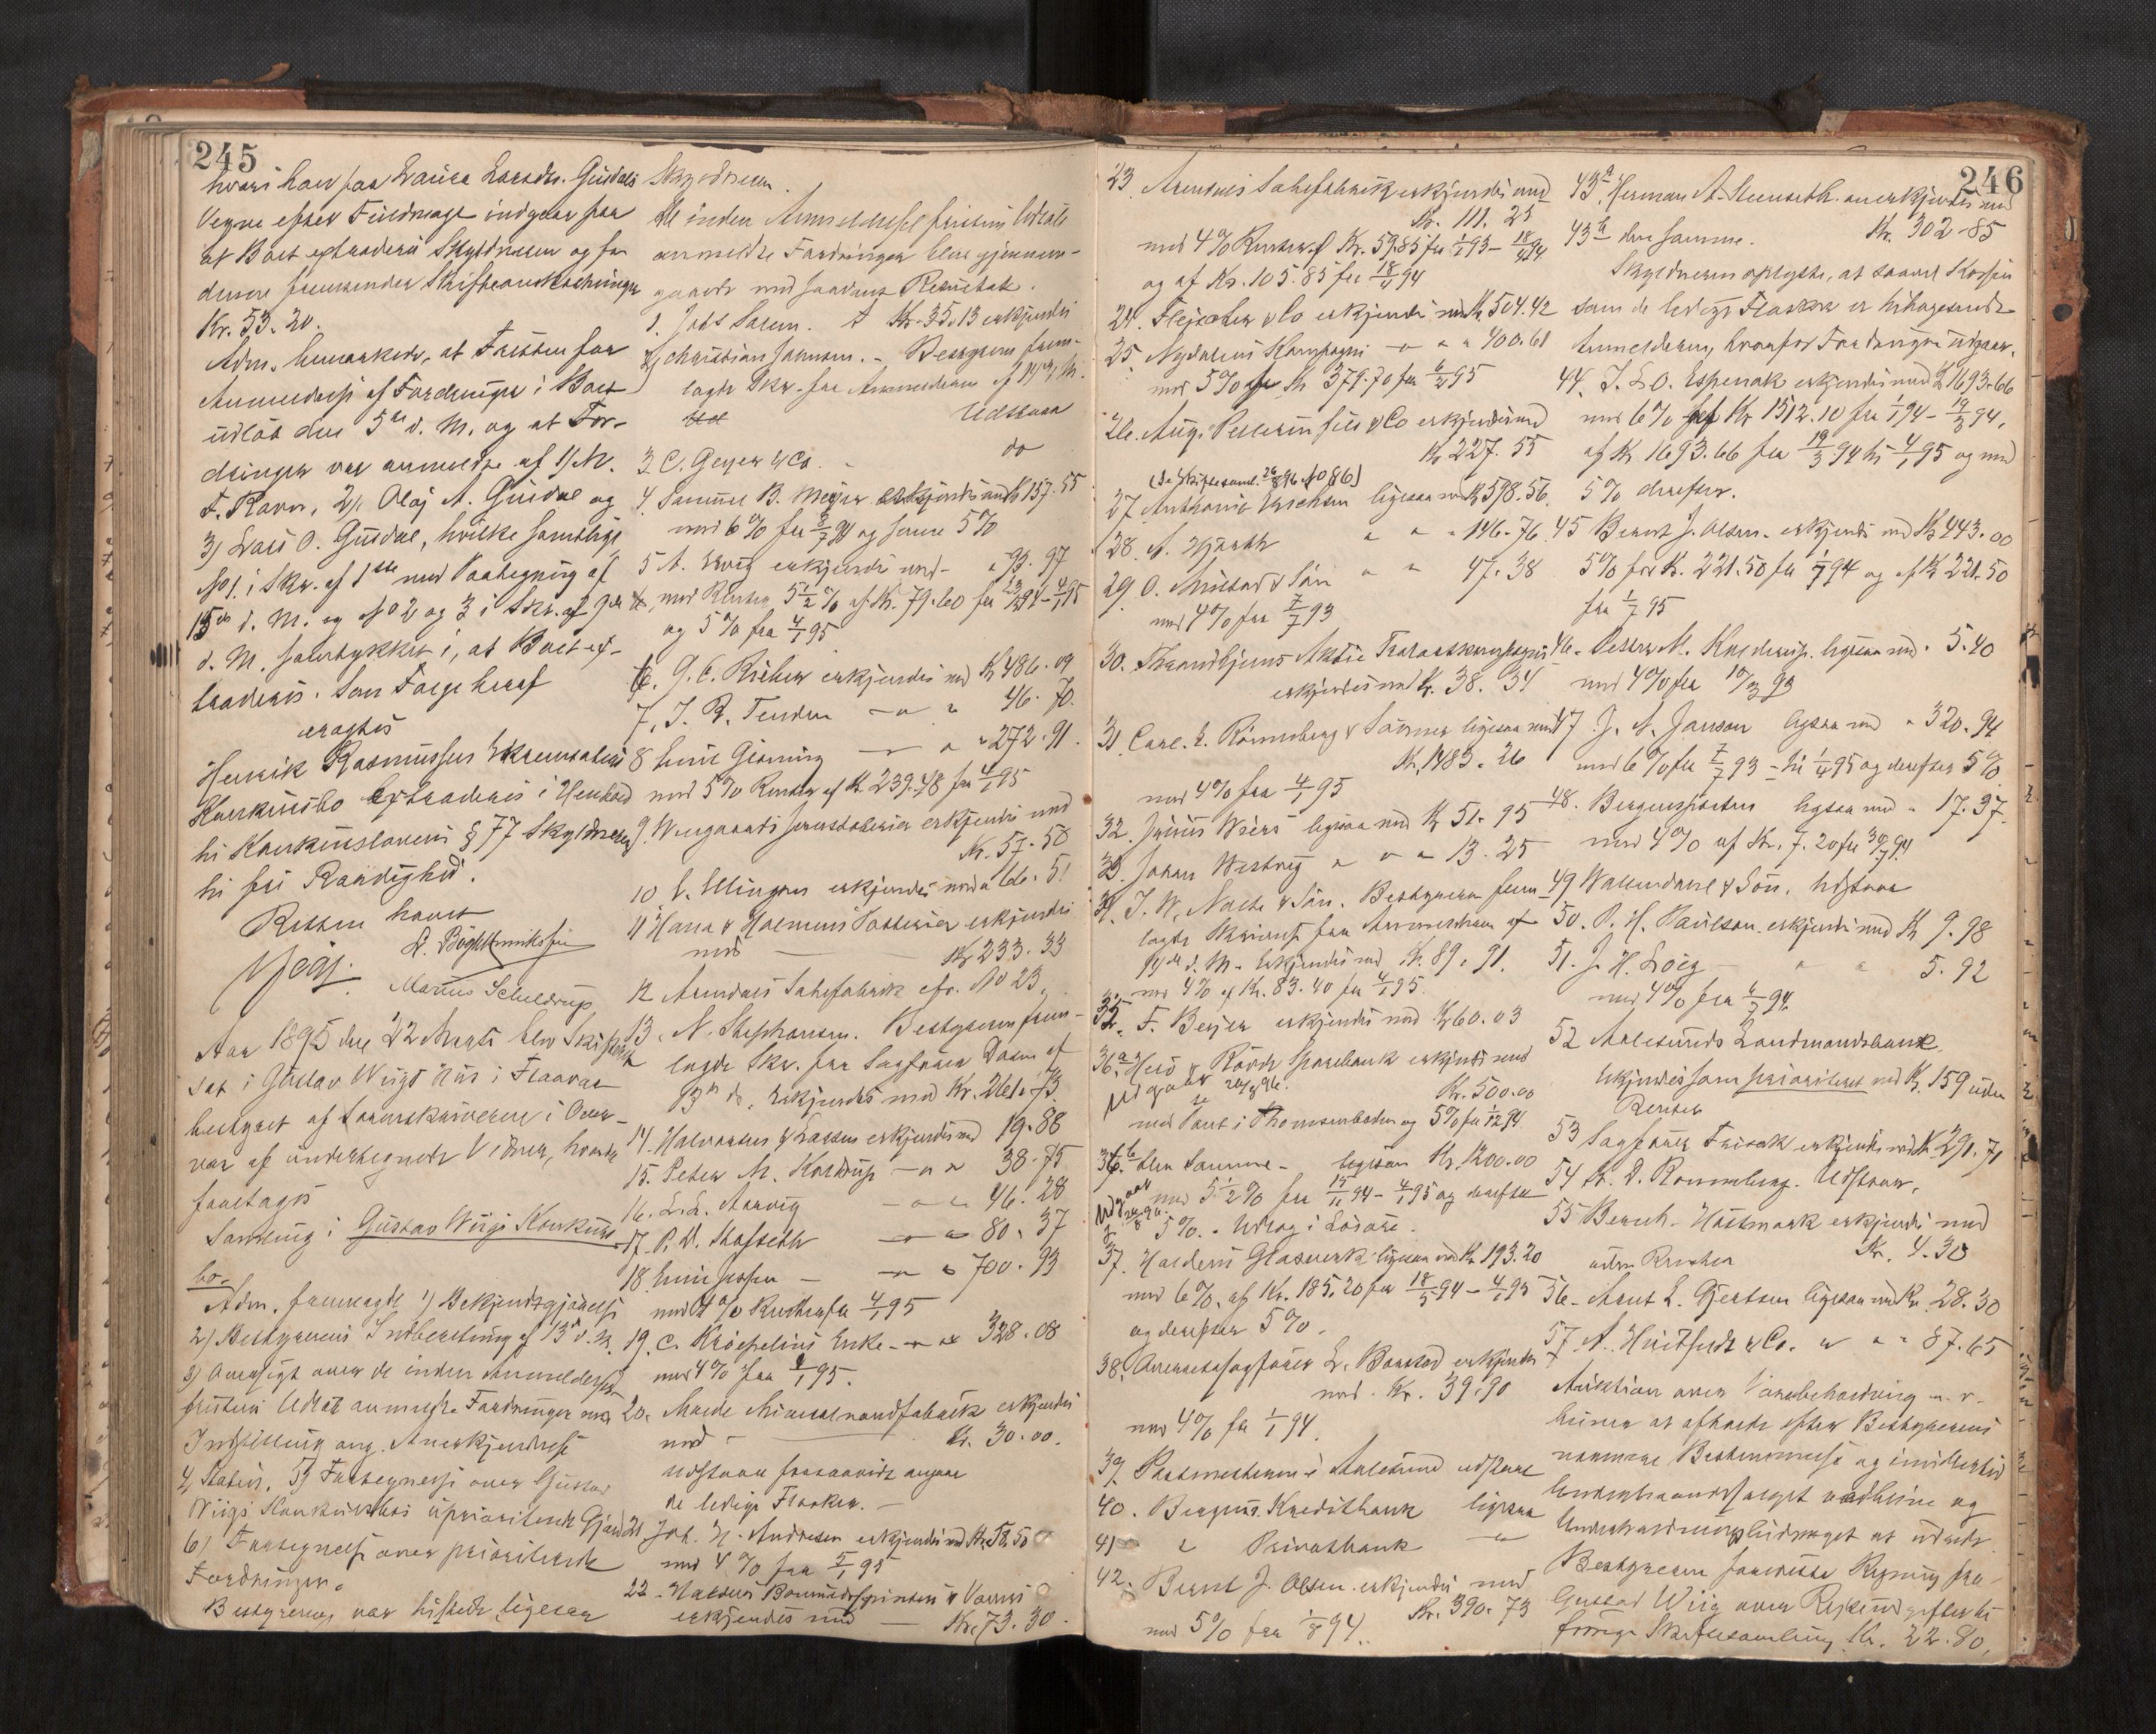 245
hvori han paa Laura Larsdtr. Gurdals
Vegne efter Fuldmagt indgaar paa
at Boet extraderes Skyldneren og for
denne fremsender Skifteomkostninger
Kr. 53.20.
Adm. bemærkede, at Fristen for
Anmeldelse af Fordringer i Boet
udløb den 5te d. M. og at For-
dringer var anmeldte af 1/ M.
F. Ravn, 2/. Oluf A. Gurdal og
3) Lars O. Gurdal, hvilke samtlige
No 1. i Skr. af 1ste med Paategning af
15de d. M. og No 2 og 3 i Skr. af 9de
d. M. samtykket i, at Boet ex-
traderes. Som Følge heraf
eragtes
Henrik Rasmussen
Konkursbo extraderes i Henhold
til Konkurslovens § 77 Skyldneren
til fri Raadighed.
Retten hævet
Marius Scheldrup
Aar 1895 den 22 Marts blev Skifteret
sat i Gustav Wiigs Hus i Flaavær
bestyret af Sorenskriveren i Over-
vær af undertegnede Vidner, hvorda
foretages
Samling i Gustav Wiigs Konkurs-
bo.
Adm. fremlagde 1) Bekjendtgjørelse
2) Bestyrerens Indberetning af 13de d. M.
3) Oversigt over de inden Anmeldelses-
fristens Udløb anmeldte Fordringer med
Indstilling ang. Anerkjendelse
4) Status. 5) Fortegnelse over Gustav
Wiigs Konkursbos uprioriterede Gjæld
6) Fortegnelse over prioriterede
Fordringer.
Bestyreren var tilstede ligesaa
Skyldneren.
De inden Anmeldelsesfristens Udløb
anmeldte Fordringer blev gjennem-
gaaede med saadant Resultat.
1. Jobs Larsen. Kr. 35.13 erkjendes
2. Christian Johnsen. - Bestyreren frem-
lagde Skr. fra Anmelderen af 14de d. M.
Udstaar
3. C. Geyer & Co. - do
4. Samuel B. Meyer erkjendes med Kr 157.55
med 6% fra 3/7 94 og senere 5%
5 A. Ervig erkjendes med - " 93.97
med Renter 5 1/2 % af Kr. 79.60 fra 23/11 94 - 4/1 95
og 5% fra 4/1 95
6. G. C. Rieber erkjendes med Kr 486.09
7. J. R. Tenden - " " 46.70.
8 Emil Gjerning - " " 272.91.
med 5% Renter af Kr. 239.48 fra 4/1 95
9. Wingaards Jernstøberi erkjendes med
Kr. 57.50
10 E. Ellingsen erkjendes med " 66.51
11 Hara & Holmens Potteri erkjendes
med - Kr 233.33
12 Arendals Sahefabrik cfr. No 23.
13. N. Stephansen. Bestyreren frem-
lagde Skr. fra Sagfører Daem af
13de ds. Erkjendes med Kr. 261.73.
14. Halvorsen & Larsen erkjendes med 19.88
15. Peter M. Kolderup - " " 38.75
16. L. L. Aarvig - " " 46.28
17. P. D. Stafseth - " " 80.37
18. Emil Jessen - " " 700.93
med 4% Renter fra 4/1 95
19. C. Krøepelius Enke - " " 328.08
med 4% fra 4/1 95.
20. Molde Mineralvandfabrik erkjendes
med - Kr. 30.00.
Udstaar forsaavidt angaar
de ledige Flasker. -
21 Joh. H. Andresen erkjendes med Kr. 78.50
med 4% fra 5/1 95
22. Haldens Bomuldsspinderi & Væveri
erkjendes med - Kr. 73.30.
246
23 Arendals Sahefabrik erkjendes med
Kr. 111.25
med 4% Renter af Kr. 59.85 fra 1/1 93 - 18/4 94
og af Kr. 105.85 fra 18/4 94
24. Flejscher & Co erkjendes med Kr. 504.42
25. Nydalens Kompagni - " " 400.61
med 5% fra Kr 379.70 fra 6/2 95
26. Aug. Pellerin fils & Co erkjendes med
Kr 227.55
(Se Skiftesaml. 26/8 96 No 86)
27 Anthonie Erichsen ligesaa med Kr 598.56
28. A. Hjorth " " " 146.76.
29 O. Mustad & Søn " " 47.38
med 4% fra 7/7 93
30. Throndhjems Aktie
erkjendes med Kr. 38.34
31 Carl. E. Rønneberg & Sønner ligesaa med
Kr. 1483.26
med 4% fra 4/1 95
32. Julius Wiers ligesaa med Kr 51.95
33. Johan Westvig " " " 13.25
34. J. W. Nolte & Søn. Bestyreren frem-
lagde Skrivelse fra Anmelderen af
14de d. M. Erkjendes med Kr. 89.91.
med 4% af Kr. 83.40 fra 4/1 95.
35. F. Beyer erkjendes med Kr 60.03
36a Herø & Røvde Sparebank erkjendes med
Udgaar 26/8 96.
Kr. 500.00
med Pant i Thomsenboden og 5% fra 1/12 94
36b. Den samme - ligesaa Kr. 1200.00
Udgaar 26/8 96.
med 5 1/2 % fra 15/11 94 - 4/1 95 og derefter
5%. - Udlæg i Løsøre.
37. Haldens Glasverk ligesaa med Kr 193.20
med 6% af Kr. 185.20 fra 18/5 94 - 4/1 95
og derefter 5%.
38. Overretssagfører L. Borstad erkjendes
med Kr. 39.90
med 4% fra 1/1 94.
39. Postmesteren i Aalesund udstaar
40. Bergens Kreditbank ligesaa
41 " Privatbank "
42. Bernt J. Olsen erkjendes med
Kr. 390.73
med 5% fra 1/8 94.
43a. Herman A. Meuseth. anerkjendes med
Kr. 302-85
43b den samme.
Skyldneren oplyste, at saavel
som de ledige Flasker er tilbagesendt
Anmelderen, hvorfor Fordringen udgaar.
44. J. L. O. Espenak erkjendes med Kr 1693.66
med 6% af Kr 1512.10 fra 1/1 94 - 19/3 94,
af Kr 1693.66 fra 19/3 94 til 4/1 95 og med
5% derefter.
45 Bernt J. Olsen. erkjendes med Kr 443.00
5% for Kr. 221.50 fra 1/7 94 og af Kr 221.50
fra 1/7 95
46. Petter M. Kolderup. ligesaa med " 5.40
med 4% fra 10/3 93
47 J. N. Janson ligesaa med " 320.94
med 6% fra 7/7 93 - til 4/1 95 og derefter 5%
48. Bergensposten ligesaa med " 17.37.
med 4% af Kr. 7.20 fra 30/7 94
49 Wallendahl & Søn. Udstaar
50. P. H. Paulson erkjendes med Kr 9.98
51. J. H. Loeg " " 5.92
med 4% fra 4/7 94.
52 Aalesunds Landmandsbank.
Erkjendes som prioriteret med Kr. 159 uden
Renter
53 Sagfører Frisak erkjendes med Kr 291.71
54 K. D. Ronneberg. Udstaar.
55 Bernh. Holtmark erkjendes med
uden Renter Kr. 4.30
56 - Knut L. Gjertsen ligesaa med Kr. 28.30
57. A. Huitfeldt & Co. " " " 87.65
Auktion over Varebeholdning m. v.
bliver at afholde efter Bestyrerens
nærmere Bestemmelse og imidlertid
Underhaandssalget vedblive og
Underholdningsbidraget at udrede.
Bestyreren foreviste Regning fra
Gustav Wiig over Rejseudgifter til
forrige Skiftesamling Kr. 22.80,